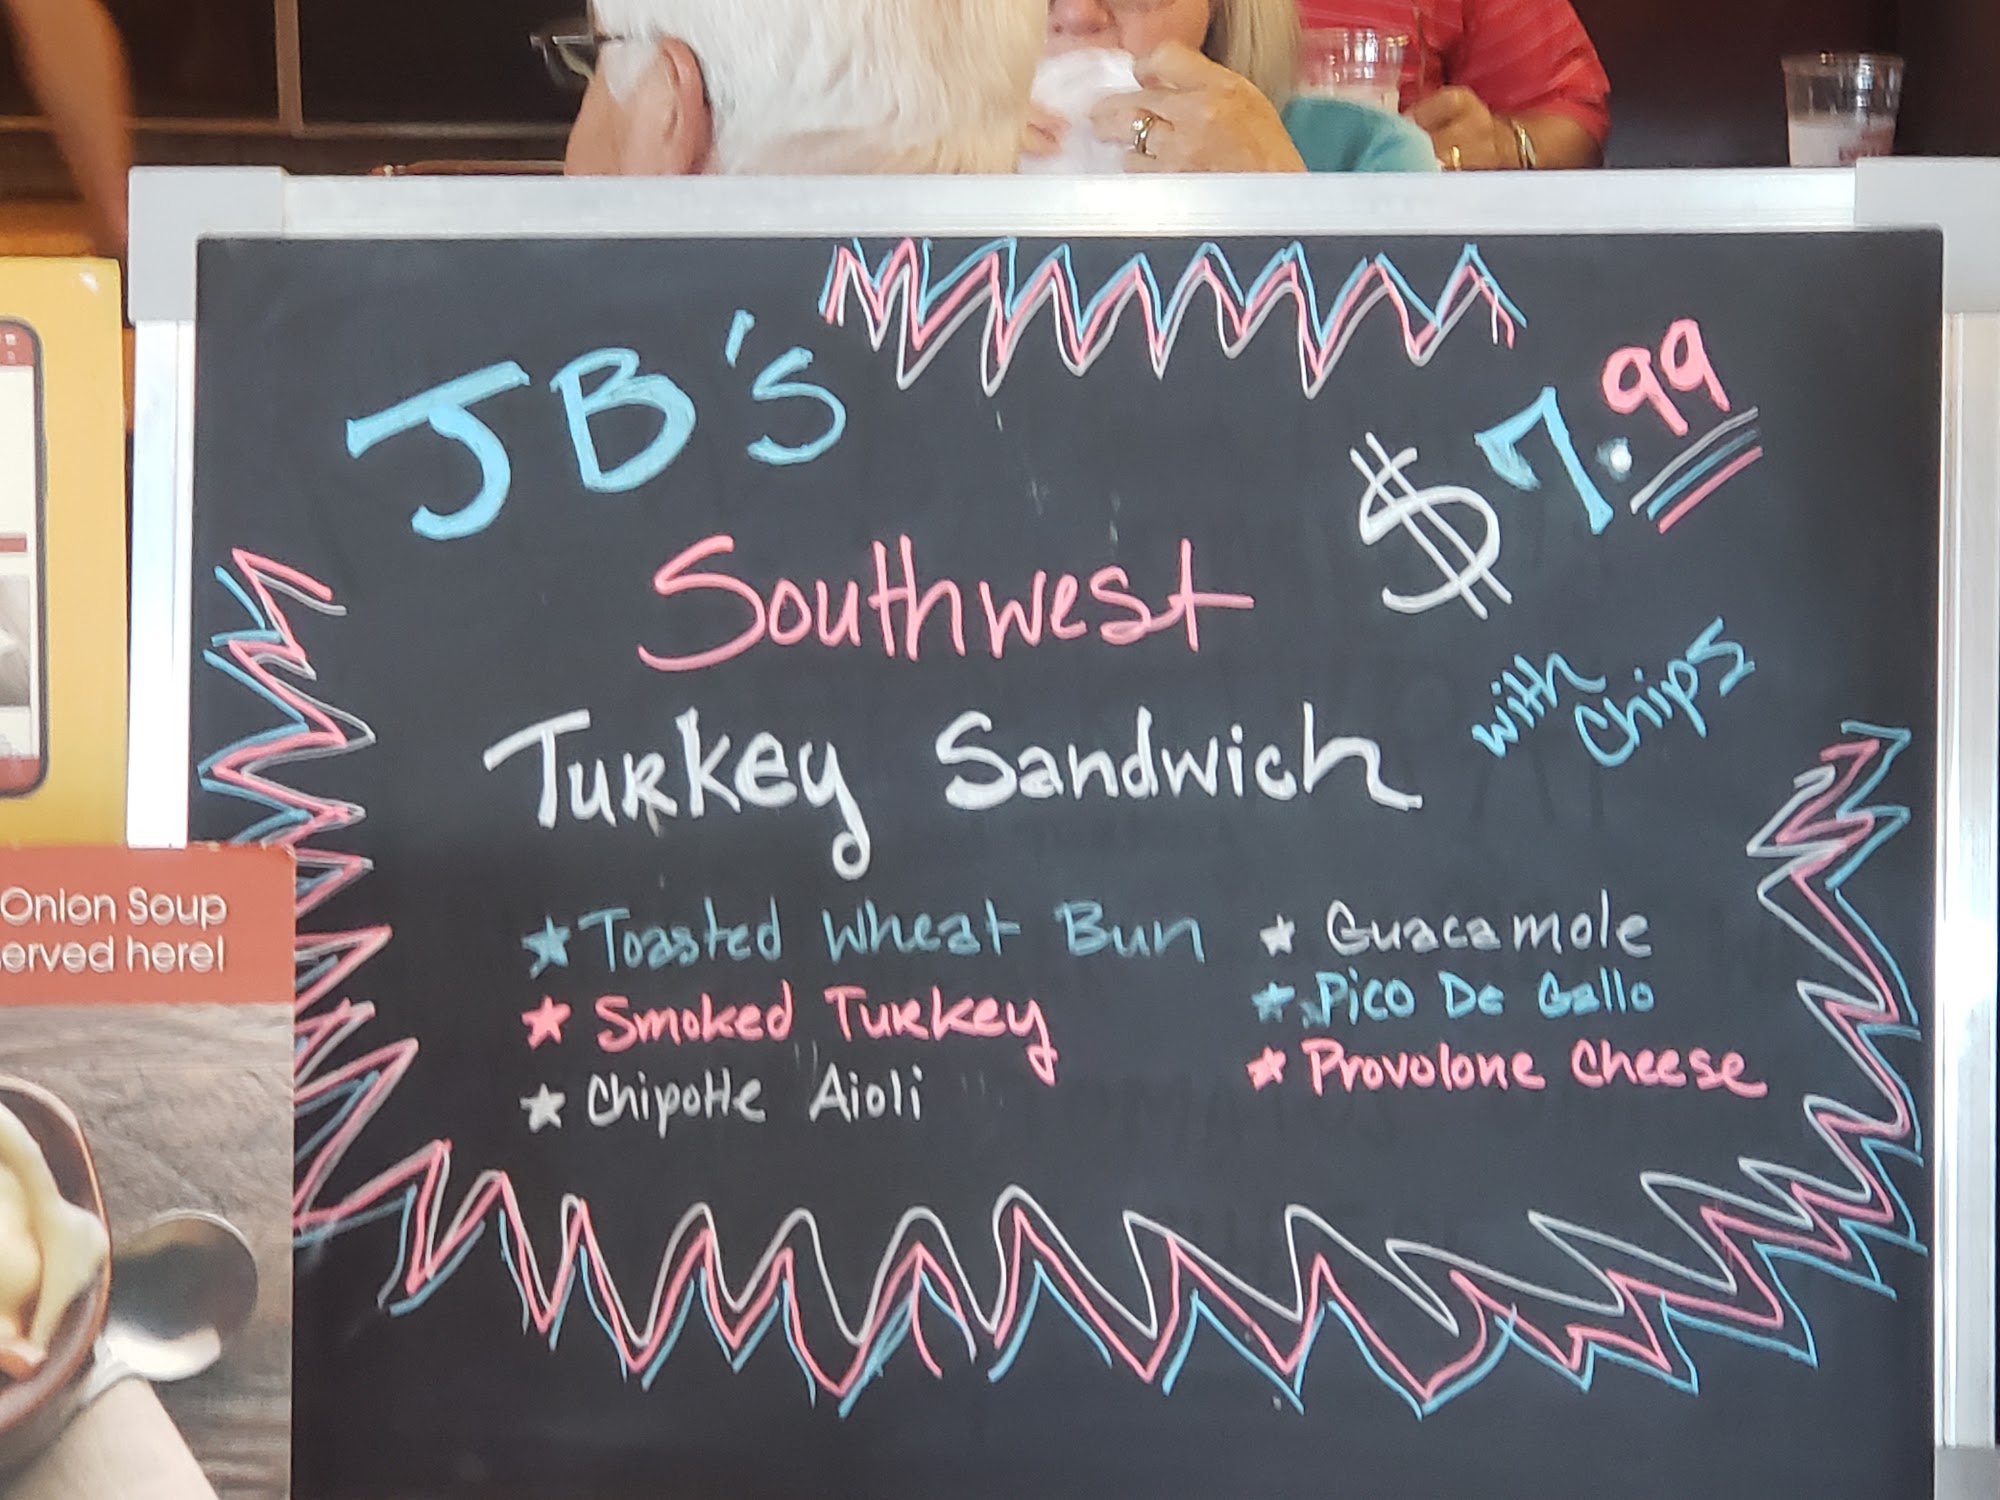 JB's
$7.99
Southwest
with
Chips
Turkey Sandwich
★ Toasted Wheat Bun
★ Smoked Turkey
★ Chipotle Aioli
★ Guacamole
★ Pico De Gallo
★ Provolone Cheese
Onion Soup
erved here!